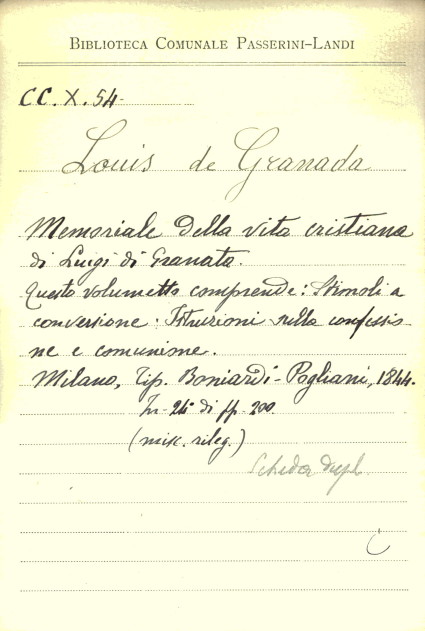 BIBLIOTECA COMUNALE PASSERINI-LANDI
CC. X. 54-
Louis de Granada
Memoriale della vita cristiana
di Luigi di Granata.
Questo volumetto comprende: Stimoli a
conversione. Istruzioni sulla confessio
ne e comunione.
Milano, Tip. Boniardi-Pogliani, 1844.
In-24° di pp. 200.
(misc. rileg.)
Scheda dupl.